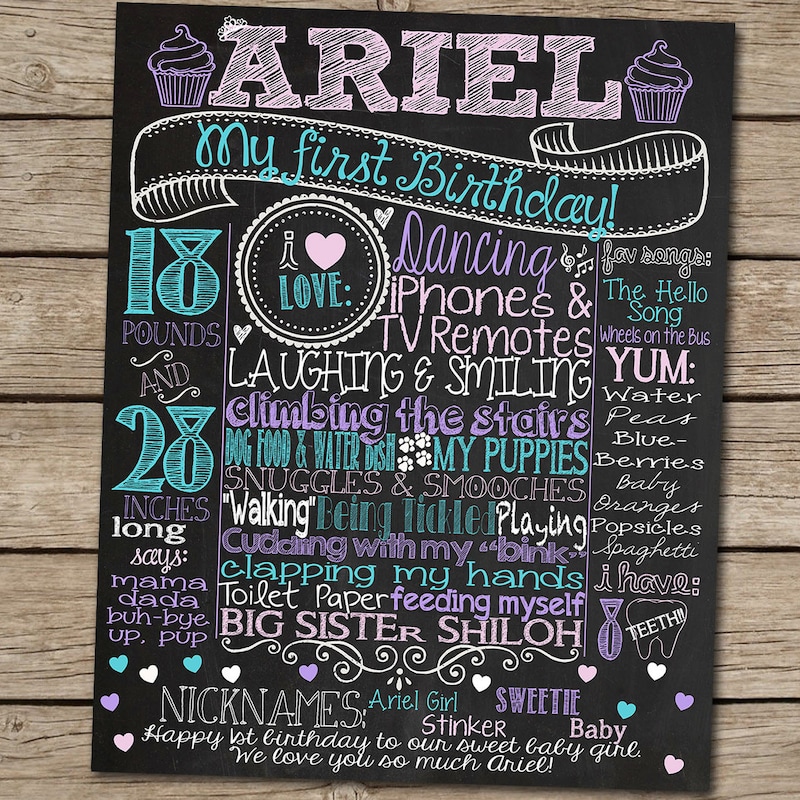 ARIEL
My first Birthday!
18
POUNDS
AND
28
INCHES
long
says:
mama
dada
buh-bye
up, pup
i
LOVE:
Dancing
iPhones &
TV Remotes
LAUGHING & SMILING
climbing the stairs
DOG FOOD & WATER DISH MY PUPPIES
SNUGGLES & SMOOCHES
"Walking" Being Tickled Playing
Cuddling with my "bink"
clapping my hands
Toilet Paper feeding myself
BIG SISTER SHILOH
fav songs:
The Hello
Song
Wheels on the Bus
YUM:
Water
Peas
Blue-
Berries
Baby
Oranges
Popsicles
Spaghetti
i have:
8 TEETH!!
NICKNAMES: Ariel Girl SWEETIE
Stinker Baby
Happy 1st birthday to our sweet baby girl.
We love you so much Ariel!